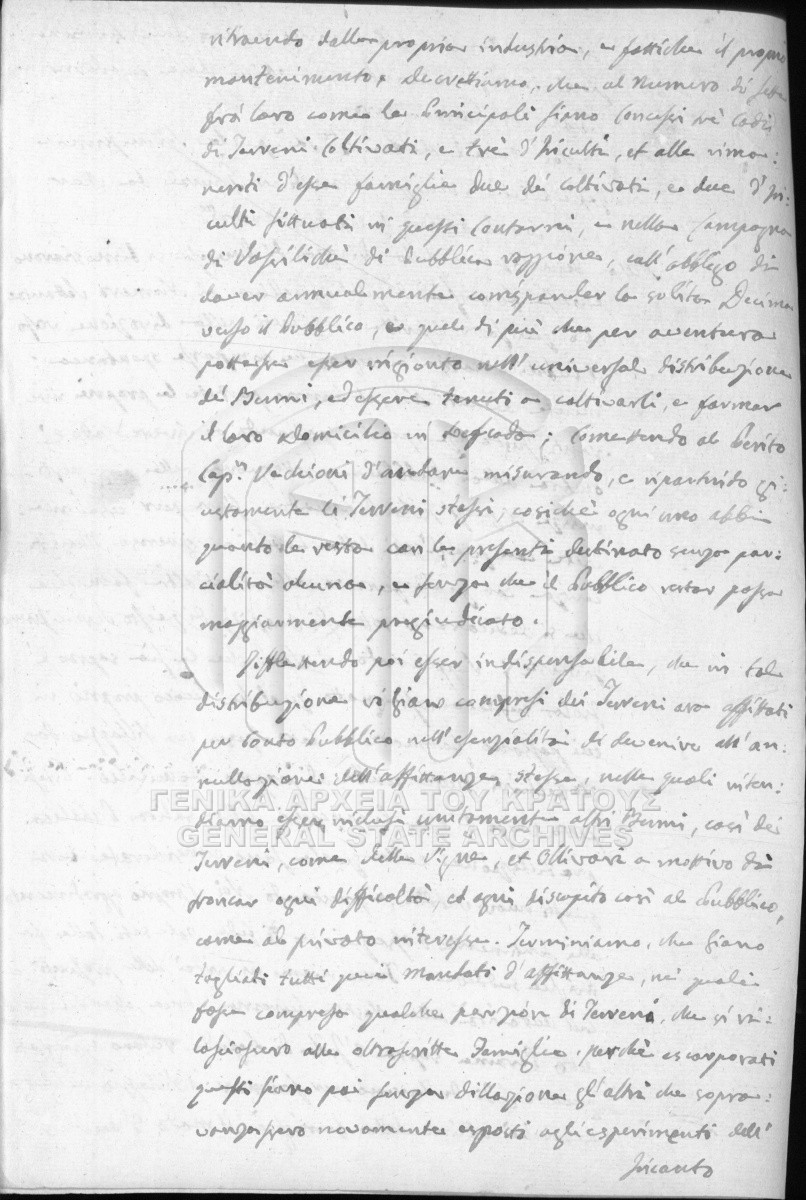 ritraendo dalla propria industria, e fattiche il proprio
mantenimento. Decrettiamo, che al numero di sette
frà loro come le Principali siano concessi trè
di Terreni coltivati, e trè d'Inculti, et alle rima:
nenti d'esse famiglie due dei coltivati, e due d'In:
culti situati in questi contorni, e nella Campagna
di Vasilichi di Pubblica raggione, coll'obbligo di
dover annualmente corrisponder la solita Decima
verso il Pubblico, e quel di più che per aventura
pottesse esser ingionto nell'universal distribuzione
dei Beni, ed essere tenuti a coltivarli, e formar
il loro Domicilio in; Comettendo al Perito
Cap.n Vechioni d'andare misurando, e ripartindo gi:
ustamente li Terreni stessi, cosiche ogni uno abbia
quanto le resta con le presenti destinato senza par:
cialità alcuna, e senza che il Pubblico restar possa
maggiormente pregiudicato.
Riflettendo poi esser indispensabile, che in tal
distribuzione vi siano compresi dei Terreni ora affittati
per conto Pubblico nell'esenzialità di devenire all'an:
nullazione dell'affittanze stesse, nelle quali inten:
diamo esser inclusi unitamente altri Beni, così dei
Terreni, come delle Vigne, et Ollivari a mottivo di
troncar ogni difficoltà, et ogni discapito così al Pubblico,
come al privato interesse. Terminiamo, che siano
tagliati tutti quei Mandati d'affittanze, nei quali
fosse compresa qualche porzion di Terreni, che si ri:
lasciassero alle oltrascritte Famiglie, perchè escorporati
questi siano poi senza dillazione gl'altri che sopra:
vanzassero novamente esposti agli esperimenti dell'
Incanto
ΓΕΝΙΚΑ ΑΡΧΕΙΑ ΤΟΥ ΚΡΑΤΟΥΣ
GENERAL STATE ARCHIVES